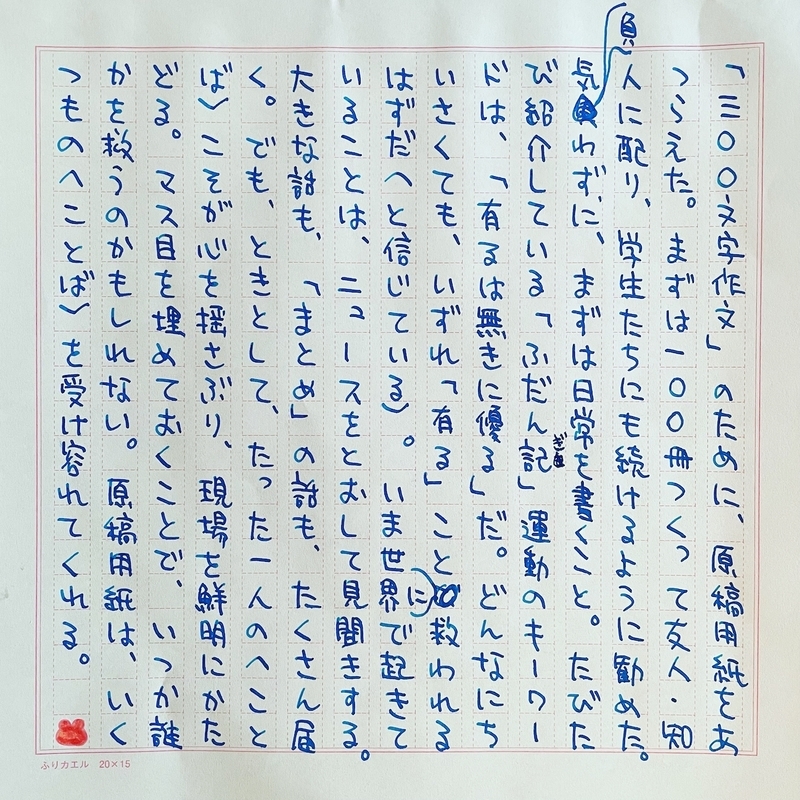 「三〇〇文字作文」のために、原稿用紙をあ
つらえた。まずは一〇〇冊つくって友人・知
人に配り、学生たちにも続けるように勧めた。
気負わずに、まずは日常を書くこと。たびた
び紹介している「ふだん記」運動のキーワー
ドは、「有るは無きに優る」だ。どんなにち
いさくても、いずれ「有る」ことに救われる
はずだ（と信じている）。いま世界で起きて
いることは、ニュースをとおして見聞きする。
大きな話も、「まとめ」の話も、たくさん届
く。でも、ときとして、たった一人の〈こと
ば〉こそが心を揺さぶり、現場を鮮明にかた
どる。マス目を埋めておくことで、いつか誰
かを救うのかもしれない。原稿用紙は、いく
つもの〈ことば〉を受け容れてくれる。
ふりカエル 20×15